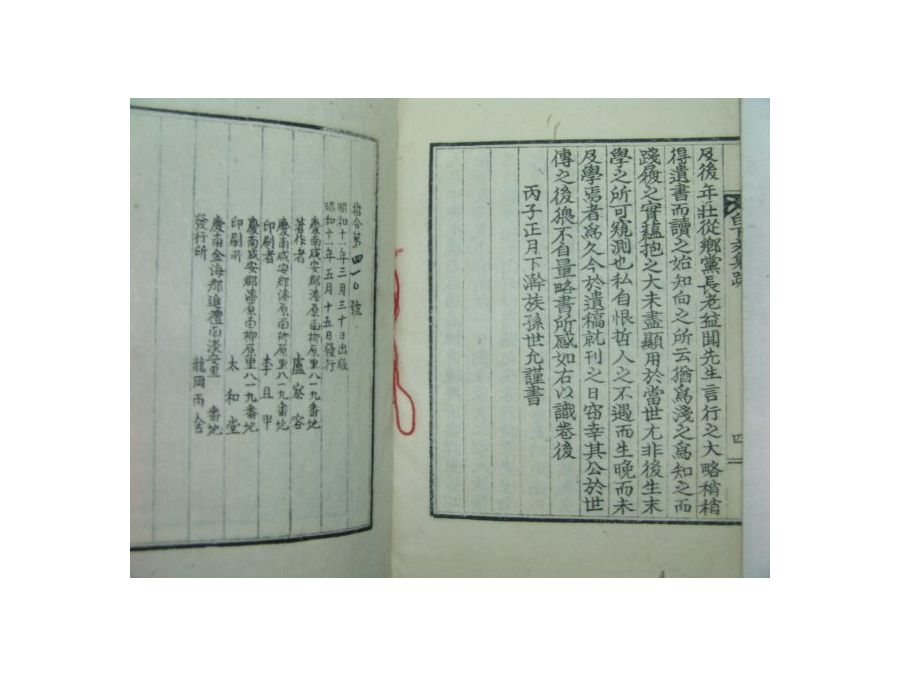 及後年壯從鄕黨長老益聞先生言行之大略稍稍
得遺書而讀之始知向之所云猶爲淺之爲知之而
踐履之實蘊抱之大未盡顯用於當世尤非後生末
學之所可窺測也私自恨哲人之不遇而生晚而未
及學焉者爲久今於遺稿就刊之日窃幸其公於世
傳之後㮣不自量略書所感如右以識卷後
丙子正月下澣族孫世允謹書
文集跋
四
指令第四一〇號
昭和十一年三月三十日出版
昭和十一年五月十五日發行
慶南咸安郡漆原面柳原里八一九番地
著作者 盧
慶南咸安郡漆原面柳原里八一九番地
印刷者 李且甲
慶南咸安郡漆原面柳原里八一九番地
印刷所 太和堂
慶南金海郡進禮面 里 番地
發行所 龍岡